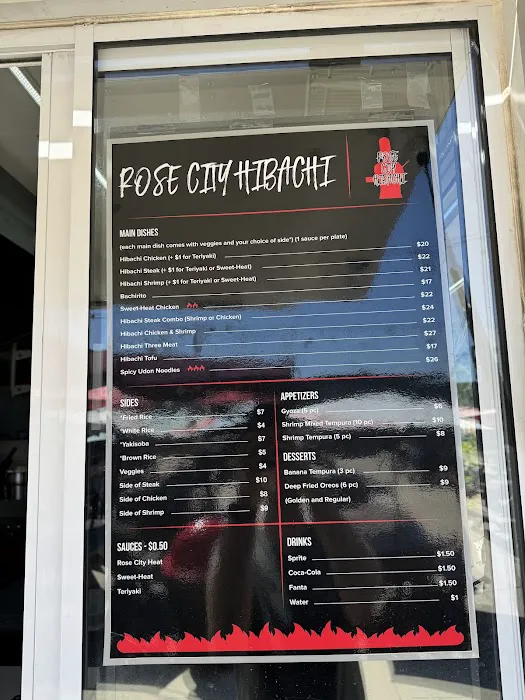 ROSE CITY HIBACHI
ROSE
CITY
HIBACHI
MAIN DISHES
(each main dish comes with veggies and your choice of side*) (1 sauce per plate)
Hibachi Chicken (+ $1 for Teriyaki) $20
Hibachi Steak (+ $1 for Teriyaki or Sweet-Heat) $22
Hibachi Shrimp (+ $1 for Teriyaki or Sweet-Heat) $21
Bachirito $17
Sweet-Heat Chicken $22
Hibachi Steak Combo (Shrimp or Chicken) $24
Hibachi Chicken & Shrimp $22
Hibachi Three Meat $27
Hibachi Tofu $17
Spicy Udon Noodles $26
SIDES
*Fried Rice $7
*White Rice $4
*Yakisoba $7
*Brown Rice $5
Veggies $4
Side of Steak $10
Side of Chicken $8
Side of Shrimp $9
APPETIZERS
Gyoza (5 pc) $6
Shrimp Mixed Tempura (10 pc) $10
Shrimp Tempura (5 pc) $8
DESSERTS
Banana Tempura (3 pc) $9
Deep Fried Oreos (6 pc) $9
(Golden and Regular)
SAUCES - $0.50
Rose City Heat
Sweet-Heat
Teriyaki
DRINKS
Sprite $1.50
Coca-Cola $1.50
Fanta $1.50
Water $1